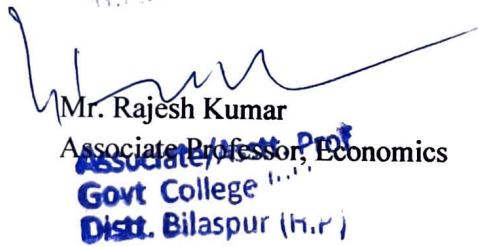 Mr. Rajesh Kumar
Associate Professor, Economics
Associate/Asstt. Prof
Govt College
Distt. Bilaspur (H.P)